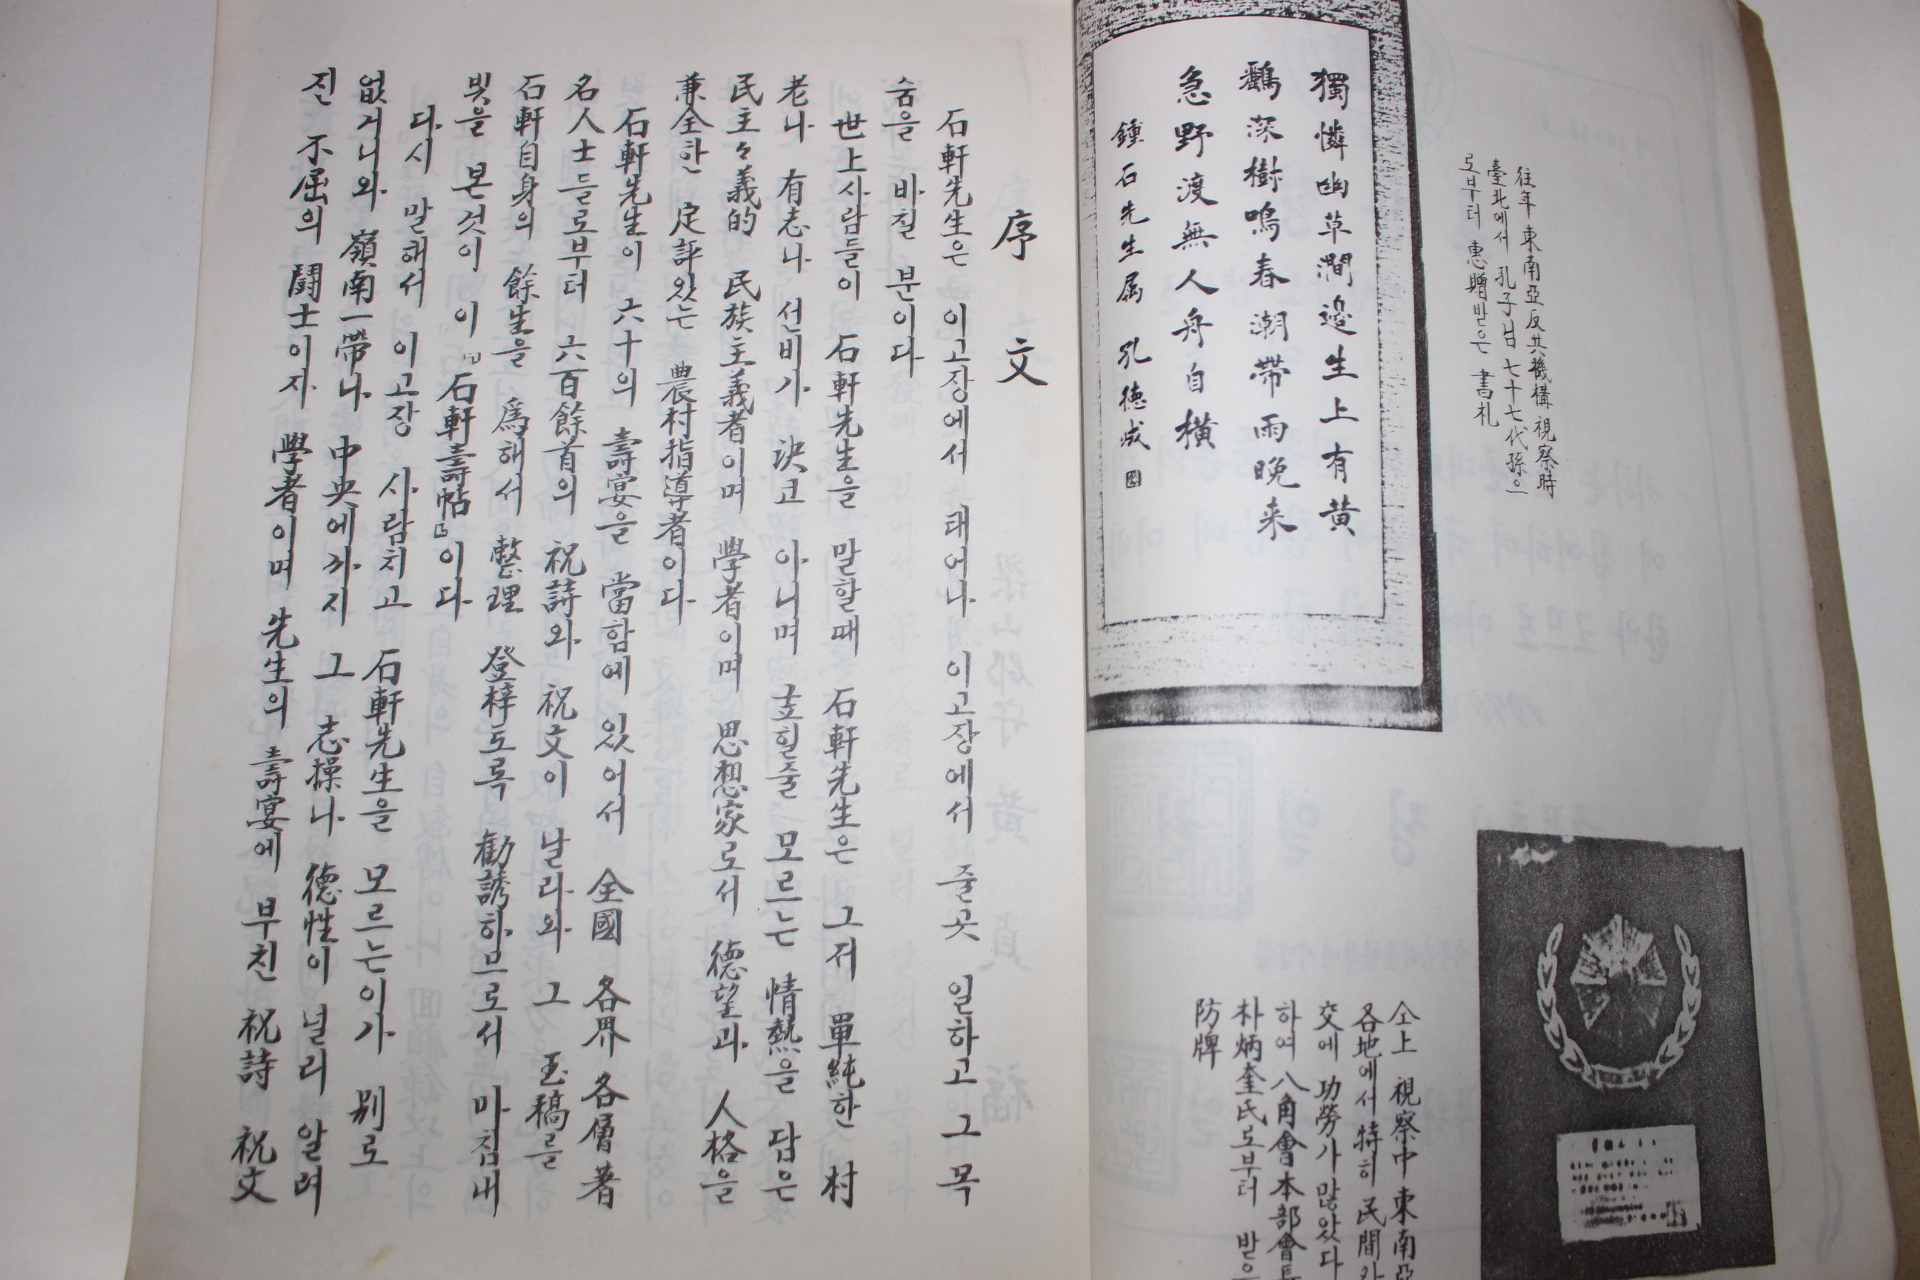 往年 東南亞反共機構 視察時
臺北에서 孔子님 七十七代孫으
로부터 惠贈받은 書札
獨憐幽草澗邊生上有黃
鸝深樹鳴春潮帶雨晩来
急野渡無人舟自橫
鍾石先生属 孔德成
仝上 視察中 東南亞
各地에서 特히 民間
交에 功勞가 많았다
하여 八角會本部會
朴炳奎氏로부터 받은
防牌
序文
石軒先生은 이고장에서 태어나 이고장에서 줄곳 일하고 그 목
숨을 바칠 분이다
世上사람들이 石軒先生을 말할때 石軒先生은 그저 單純한 村
老나 有志나 선비가 決코 아니며 굽힐줄 모르는 情熱을 담은
民主々義的 民族主義者이며 學者이며 思想家로서 德望과 人格을
兼全한 定評있는 農村指導者이다
石軒先生이 六十의 壽宴을 當함에 있어서 全國 各界 各層 著
名人士들로부터 六百餘首의 祝詩와 祝文이 날라와 그 玉稿를
石軒自身의 餘生을 爲해서 整理 登梓도록 勸誘하므로서 마침내
빛을 본것이 이『石軒壽帖』이다
다시 말해서 이고장 사람치고 石軒先生을 모르는이가 別로
없거니와 嶺南一帶나 中央에까지 그 志操나 德性이 널리 알려
진 不屈의 鬪士이자 學者이며 先生의 壽宴에 부친 祝詩 祝文